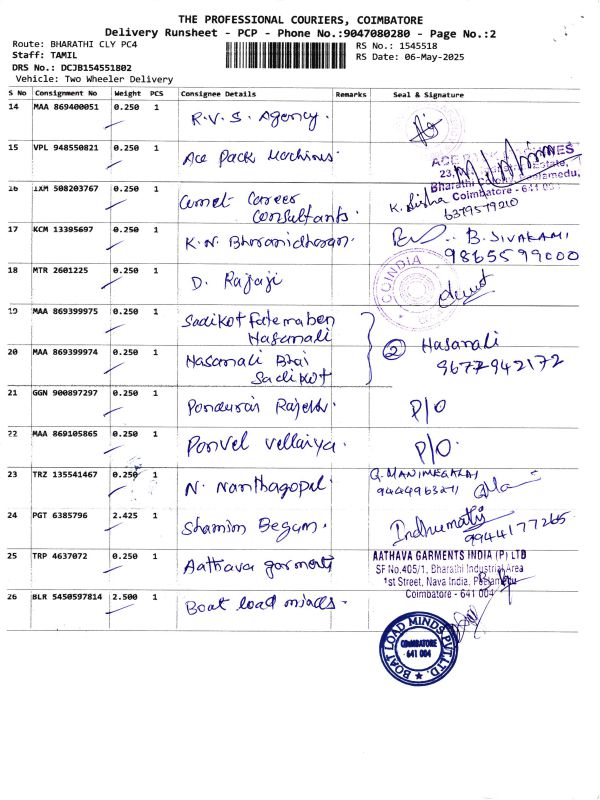 THE PROFESSIONAL COURIERS, COIMBATORE
Delivery Runsheet - PCP - Phone No.:9047080280 - Page No.:2
Route: BHARATHI CLY PC4 RS No.: 1545518
Staff: TAMIL RS Date: 06-May-2025
DRS No.: DCJB154551802
Vehicle: Two Wheeler Delivery
S No Consignment No Weight PCS Consignee Details Remarks Seal & Signature
14 MAA 869400051 0.250 1 R.V.S. Agency.
15 VPL 948550821 0.250 1 Ace Pack Machines.
23, Estate,
Bharathi
Coimbatore - 641
16 IXM 508203767 0.250 1 Comet Career
Consultants. K. Nisha
6379579210
17 KCM 13395697 0.250 1 K.N. Bhoranidharan. B. SIVAKAMI
9865599000
18 MTR 2601225 0.250 1 D. Rajaji COINDIA
19 MAA 869399975 0.250 1 Sadikot Fatemaben
Hasamali
20 MAA 869399974 0.250 1 Hasamali Bhai
Sadikot
2 Hasamali
9677942172
21 GGN 900897297 0.250 1 Pondurai Rajesh. P/O
22 MAA 869105865 0.250 1 Ponvel Vellaiya. P/O.
23 TRZ 135541467 0.250 1 N. Nanthagopal. G. MANIMEGALAI
24 PGT 6385796 2.425 1 Shamim Begam. Indhumathi
9944177265
25 TRP 4637072 0.250 1 Aathava garments AATHAVA GARMENTS INDIA (P) LTD
SF No.405/1, Bharathi Industrial Area
1st Street, Nava India, Peelamedu
Coimbatore - 641 004
26 BLR 5450597814 2.500 1 Boat load minds.
BOAT LOAD MINDS PVT. LTD.
COIMBATORE
641 004